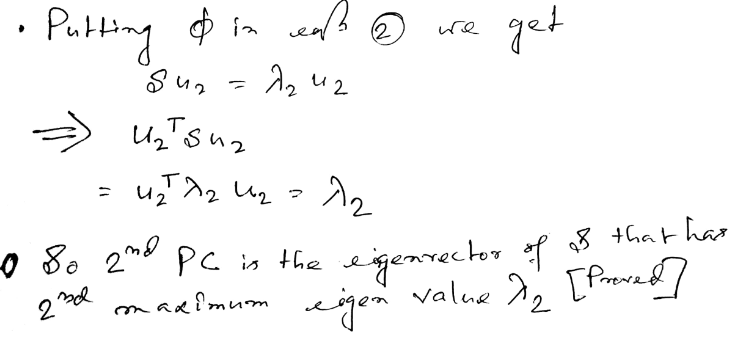 • Putting ϕ in eqn ② we get
Su₂ = λ₂ u₂
⇒ u₂ᵀSu₂
= u₂ᵀλ₂ u₂ = λ₂
So 2nd PC is the eigenvector of S that has
2nd maximum eigen value λ₂ [Proved]